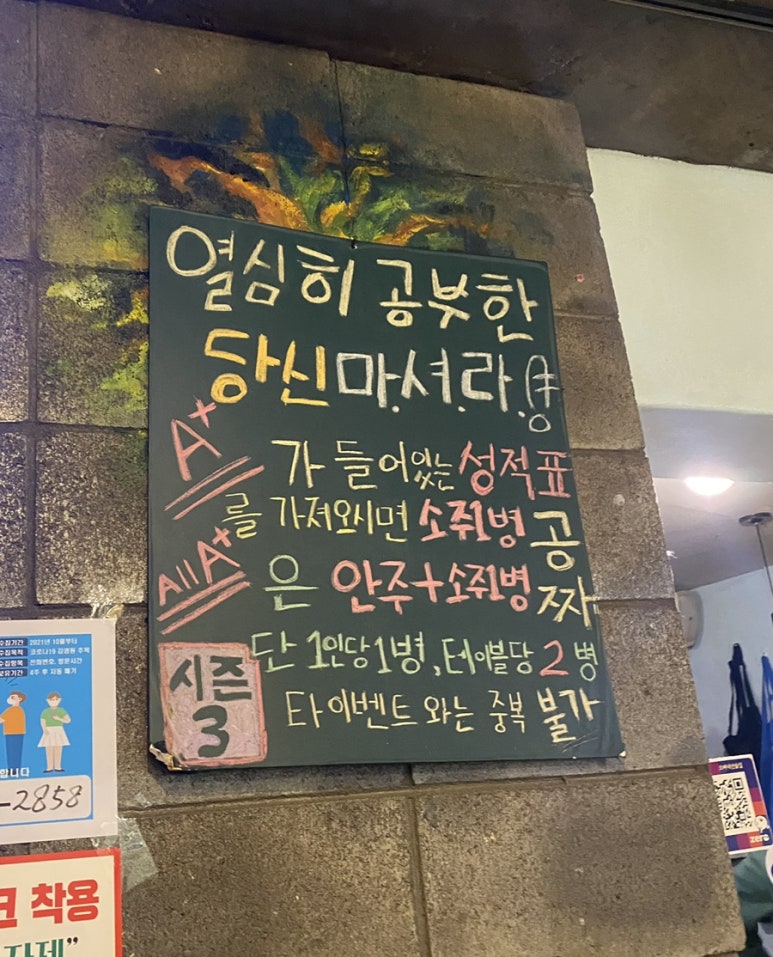 열심히 공부한
당신 마.셔.라.
A+ 가 들어있는 성적표
를 가져오시면 소주1병 공짜
All A+ 은 안주+소주1병
단 1인당 1병, 테이블당 2병
타이벤트와는 중복 불가
시즌
3
수집기간 2021년 10월부터
수집목적 코로나19 감염원 추적
수집항목 전화번호, 방문시간
보유기간 4주 후 자동 폐기
합니다
-2858
크 착용
자제"
zero